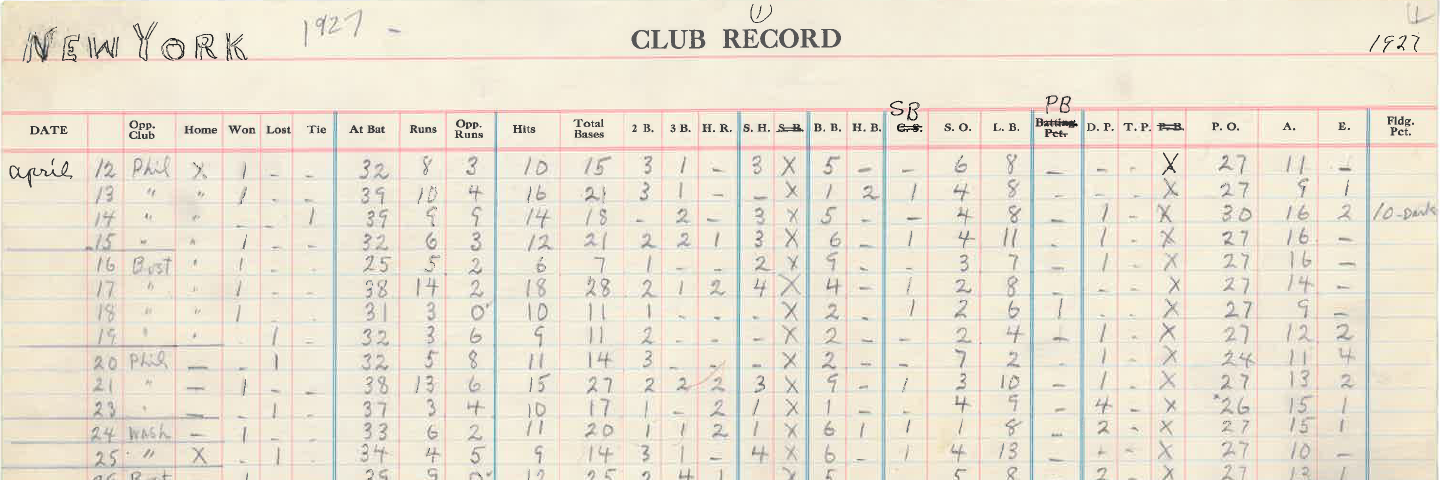 (1) 4
NEW YORK 1927 - CLUB RECORD 1927
SB PB
DATE Opp. Club Home Won Lost Tie At Bat Runs Opp. Runs Hits Total Bases 2 B. 3 B. H. R. S. H. S. B. B. B. H. B. C. S. S. O. L. B. Batting Pct. D. P. T. P. P. B. P. O. A. E. Fldg. Pct.
april 12 Phil X 1 - - 32 8 3 10 15 3 1 - 3 X 5 - - 6 8 - - - X 27 11 -
13 " " 1 - - 39 10 4 16 21 3 1 - - X 1 2 1 4 8 - - - X 27 9 1
14 " " - - 1 39 9 9 14 18 - 2 - 3 X 5 - - 4 8 - 1 - X 30 16 2 10-Dark
15 " " 1 - - 32 6 3 12 21 2 2 1 3 X 6 - 1 4 11 - 1 - X 27 16 -
16 Bost " 1 - - 25 5 2 6 7 1 - - 2 X 9 - - 3 7 - 1 - X 27 16 -
17 " " 1 - - 38 14 2 18 28 2 1 2 4 X 4 - 1 2 8 - - - X 27 14 -
18 " " 1 - - 31 3 0 10 11 1 - - - X 2 - 1 2 6 1 - - X 27 9 -
19 " - 1 - 32 3 6 9 11 2 - - - X 2 - - 2 4 - 1 - X 27 12 2
20 Phil - - 1 - 32 5 8 11 14 3 - - - X 2 - - 7 2 - 1 - X 24 11 4
21 " - 1 - - 38 13 6 15 27 2 2 2 3 X 9 - 1 3 10 - 1 - X 27 13 2
23 " - - 1 - 37 3 4 10 17 1 - 2 1 X 1 - - 4 9 - 4 - X *26 15 1
24 Wash - 1 - - 33 6 2 11 20 1 1 2 1 X 6 1 1 1 8 - 2 - X 27 15 1
25 " X - 1 - 34 4 5 9 14 3 1 - 4 X 6 - 1 4 13 - - - X 27 10 -